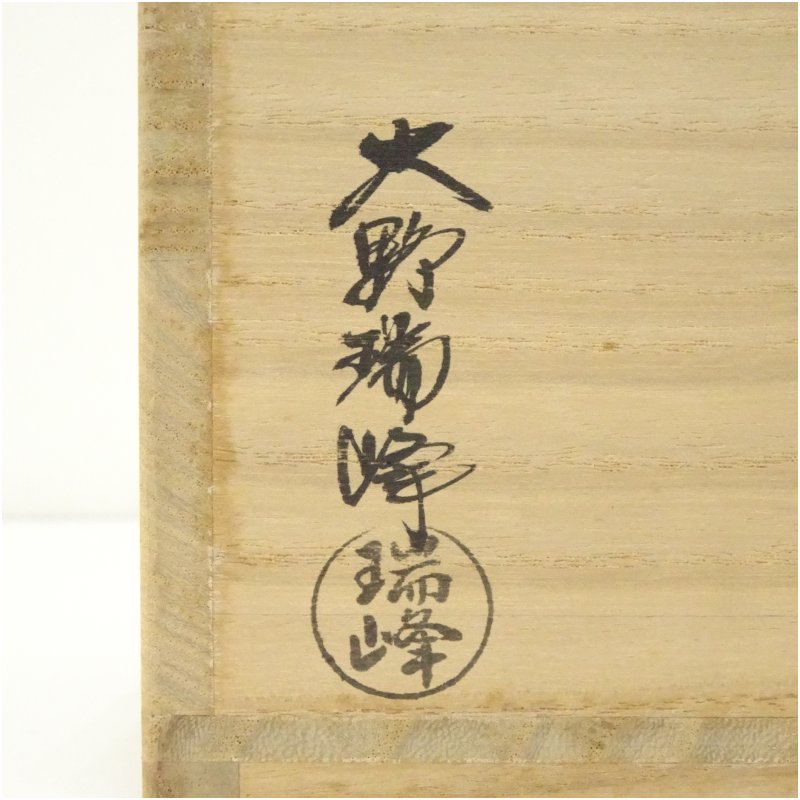 大野瑞峰
瑞峰